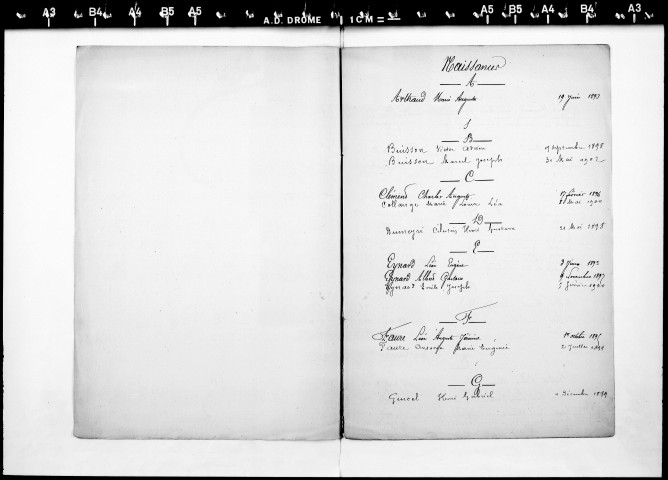 A3 B4 A4 B5 A5 A5 B5 A4 B4 A3
A.D. DROME 1 CM =
Naissances
A
Arthaud Henri Auguste 19 Juin 1893
B
Buisson Victor 9 Septembre 1898
Buisson Marcel Joseph 31 Mai 1902
C
Clément Charles Auguste 17 février 1896
Collange Marie Louise Léa Mai 1900
D
Henri Gustave 21 Mai 1898
E
Eynard Léon Eugène 3 1893
Eynard Albert Gustave 9 Novembre 1897
Eynard Emile Joseph 1900
F
Faure Léon Auguste 1er octobre 1895
Faure Marie Eugénie 2 Juillet 1899
G
Henri Gabriel Décembre 1899